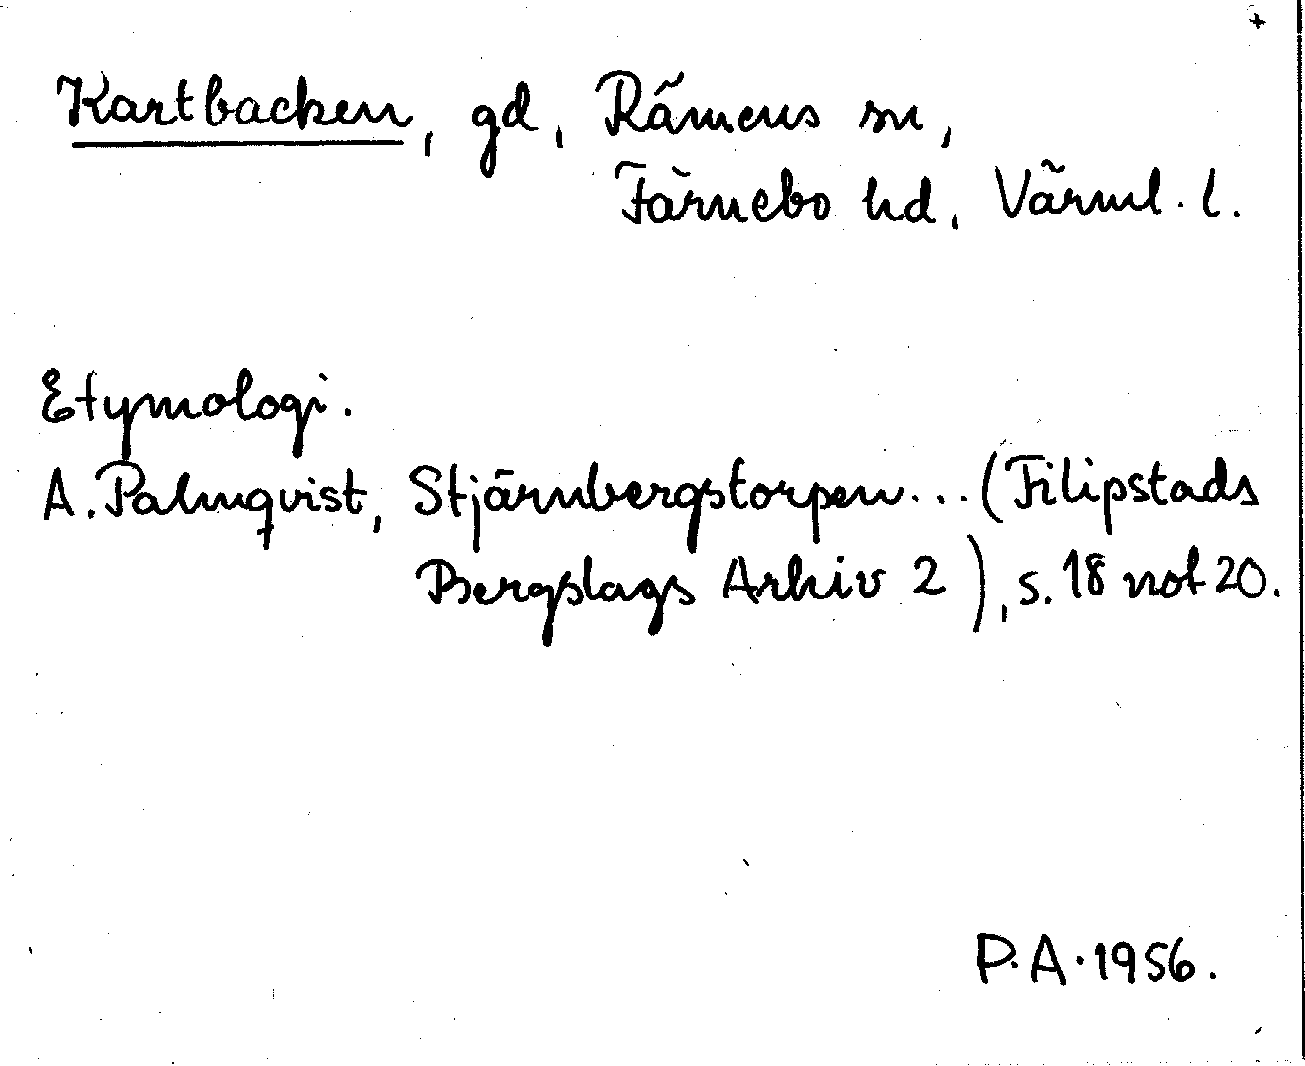 +
Kartbacken, gd, Rämens sn,
Färnebo hd, Värml. l.
Etymologi.
A. Palmqvist, Stjärnbergstorpen... (Filipstads
Bergslags Arkiv 2), s. 18 not 20.
P.A. 1956.